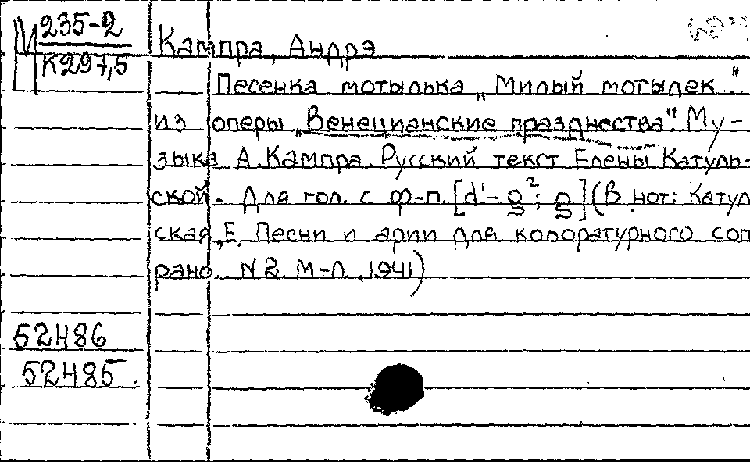 М 235-2
К297,5
Кампра, Андрэ
Песенка мотылька „Милый мотылек"
из оперы „Венецианские празднества". Му-
зыка А. Кампра. Русский текст Елены Катуль-
ской. Для гол. с ф-п. [d¹-g²; g] (В нот: Катул
ская, Е. Песни и арии для колоратурного соп
рано. N2. М-Л. 1941)
52486
52485.